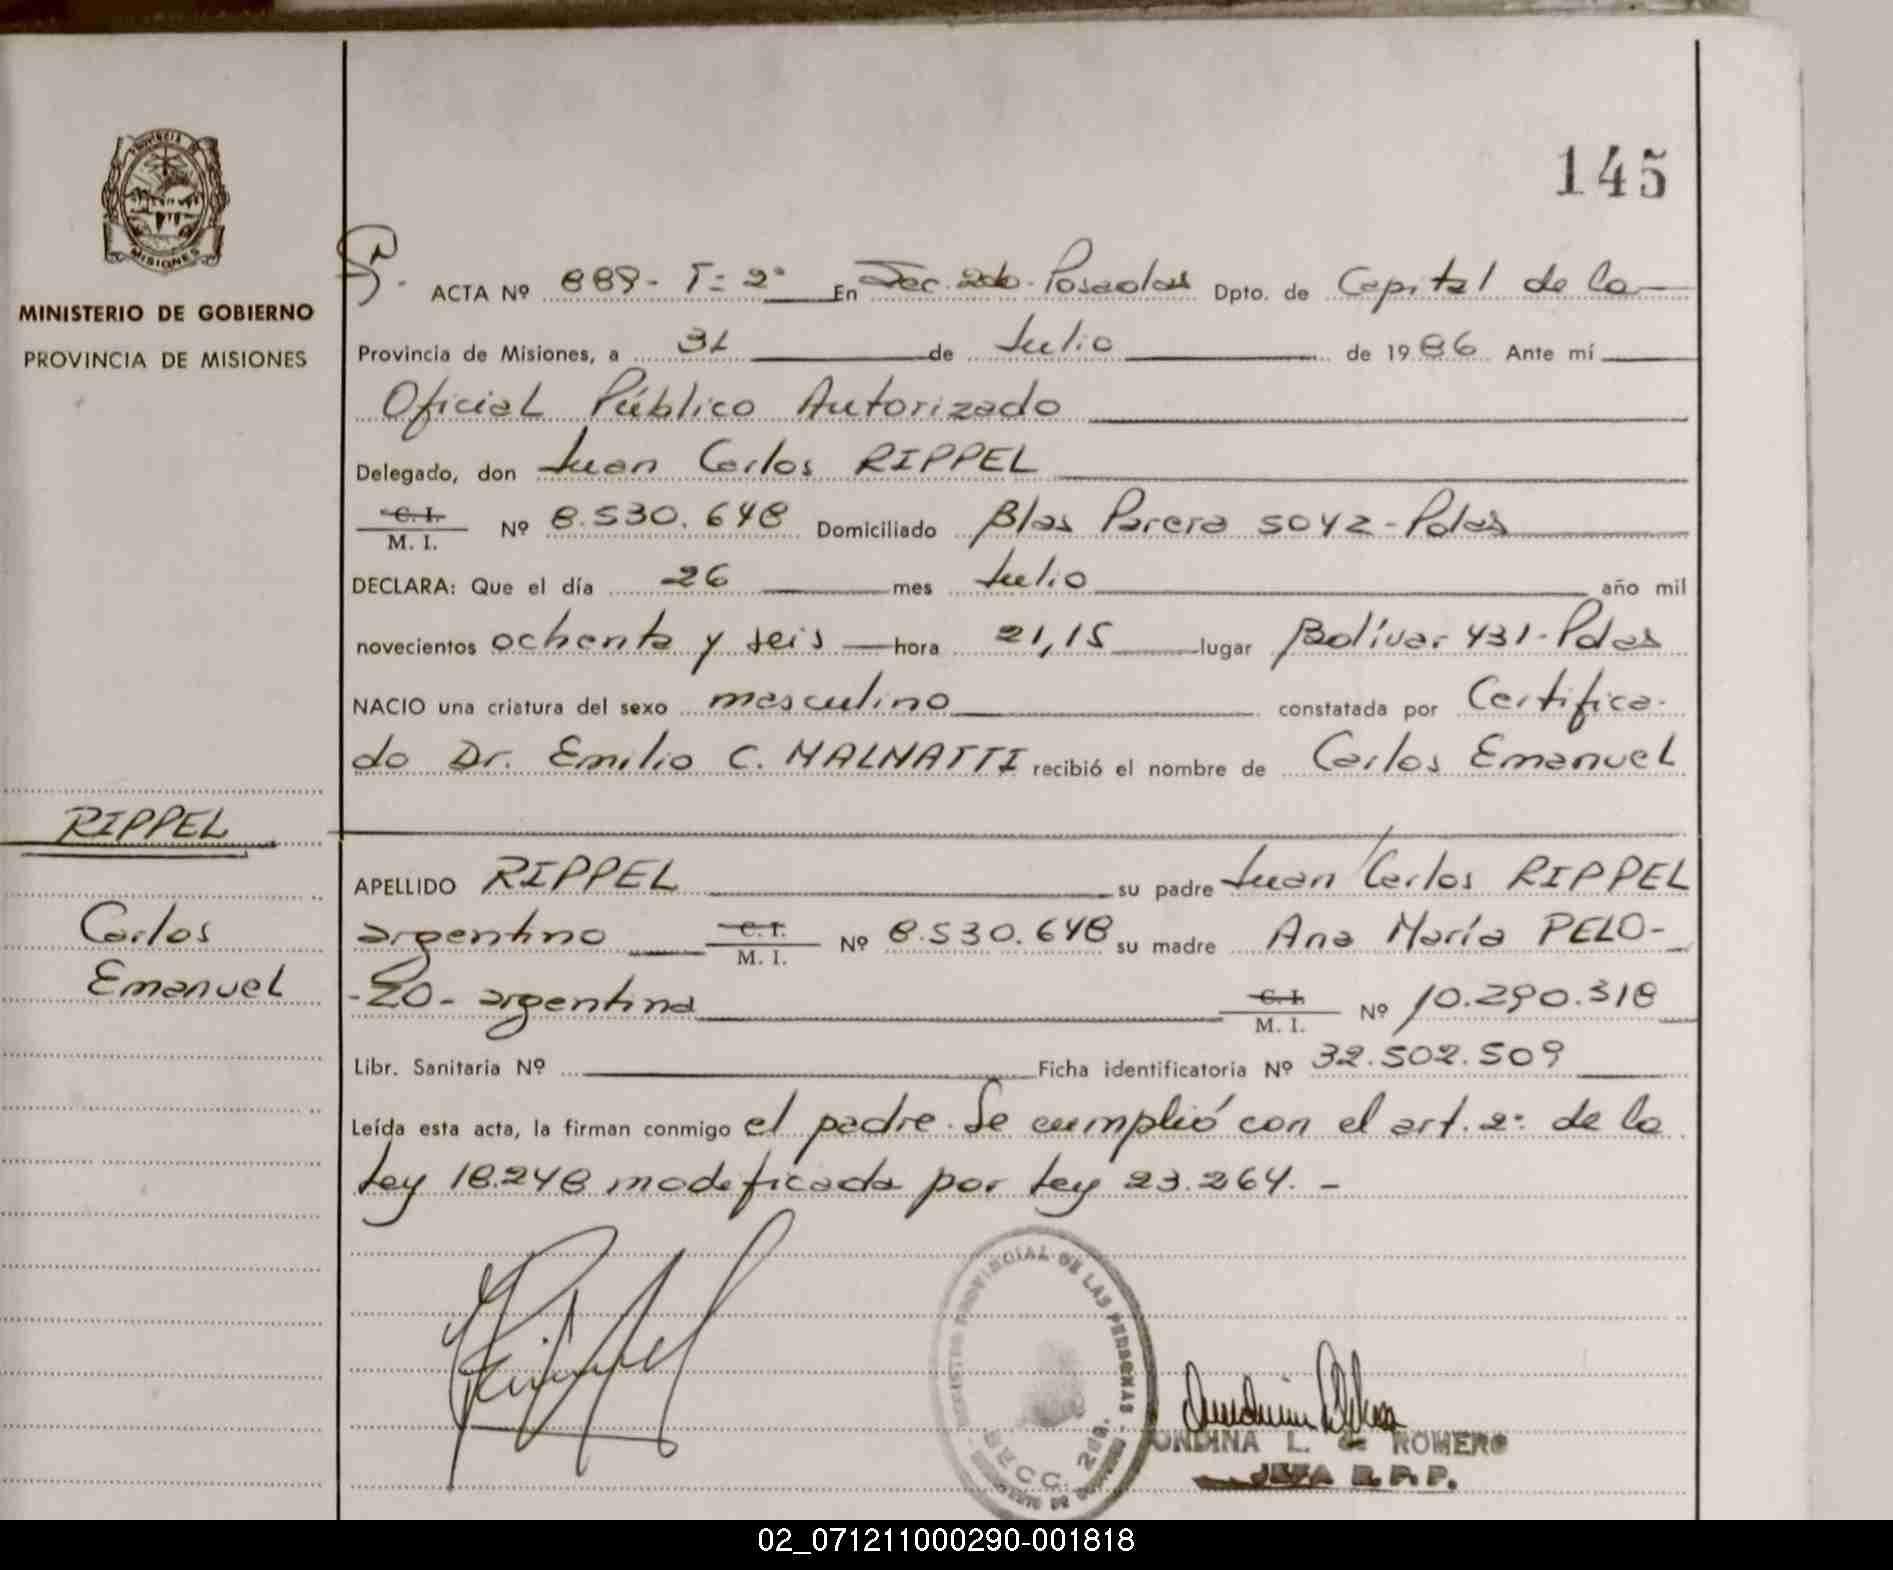 145
PROVINCIA DE
MISIONES
MINISTERIO DE GOBIERNO
PROVINCIA DE MISIONES
RIPPEL
Carlos
Emanuel
ACTA Nº 889- T= 2º En Sec. 2do. Posadas Dpto. de Capital de la
Provincia de Misiones, a 31 de Julio de 1986 Ante mí
Oficial Público Autorizado
Delegado, don Juan Carlos RIPPEL
C. I.
M. I. Nº 8.530.648 Domiciliado Blas Parera 5042-Pdas
DECLARA: Que el día 26 mes Julio año mil
novecientos ochenta y seis hora 21,15 lugar Bolívar 431-Pdas
NACIO una criatura del sexo masculino constatada por Certifica-
do Dr. Emilio C. MALNATTI recibió el nombre de Carlos Emanuel
APELLIDO RIPPEL su padre Juan Carlos RIPPEL
argentino C. I. M. I. Nº 8.530.648 su madre Ana María PELO-
-ZO- argentina C. I. M. I. Nº 10.290.318
Libr. Sanitaria Nº Ficha identificatoria Nº 32.502.509
Leída esta acta, la firman conmigo el padre. Se cumplió con el art. 2º de la
Ley 18.248 modificada por Ley 23.264. -
REGISTRO PROVINCIAL DE LAS PERSONAS
SECC. 2da.
ONDINA L. de ROMERO
JEFA R.P.P.
02_071211000290-001818